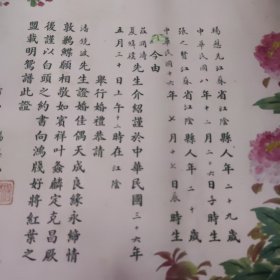 江蘇省江陰縣人年二十九歲
中華民國八年十二月二十六日子時生
江蘇省江陰縣人年二十歲
中華民國十六年七月十七日辰時生
今由
先生介紹謹於中華民國三十六年
五月二十日上午十二時在江陰
舉行婚禮恭請
先生證婚佳偶天成良緣永締情
敦鶼鰈願相敬如賓祥叶螽麟定克昌厥
後謹以白頭之約書向鴻牋好將紅葉之
盟載明鴛譜此證